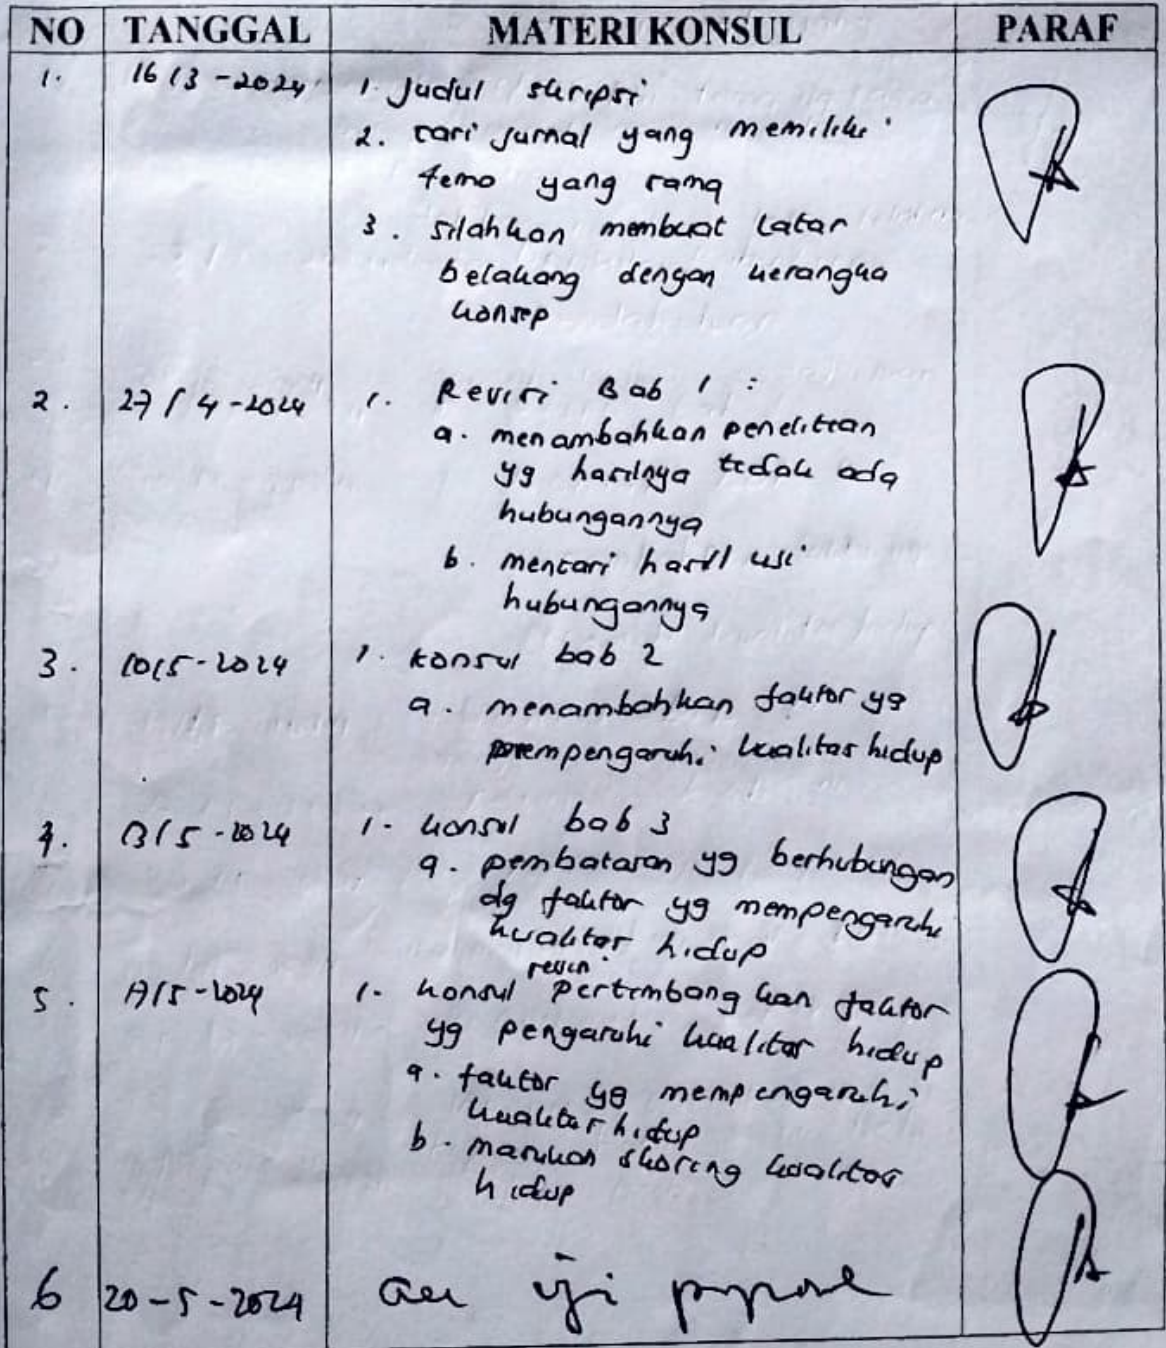 NO TANGGAL MATERI KONSUL PARAF
1. 16/3-2024 1. Judul skripsi
2. cari jurnal yang memiliki
tema yang sama
3. silahkan membuat latar
belakang dengan kerangka
konsep
2. 27/4-2024 1. Revisi Bab 1 :
a. menambahkan penelitian
yg hasilnya tidak ada
hubungannya
b. mencari hasil uji
hubungannya
3. 10/5-2024 1. konsul bab 2
a. menambahkan faktor yg
mempengaruhi kualitas hidup
4. 13/5-2024 1. konsul bab 3
a. pembatasan yg berhubungan
dg faktor yg mempengaruhi
kualitas hidup
revisi
5. 17/5-2024 1. konsul pertimbangkan faktor
yg pengaruhi kualitas hidup
a. faktor yg mempengaruhi
kualitas hidup
b. masukan skoring kualitas
hidup
6 20-5-2024 acc uji proposal